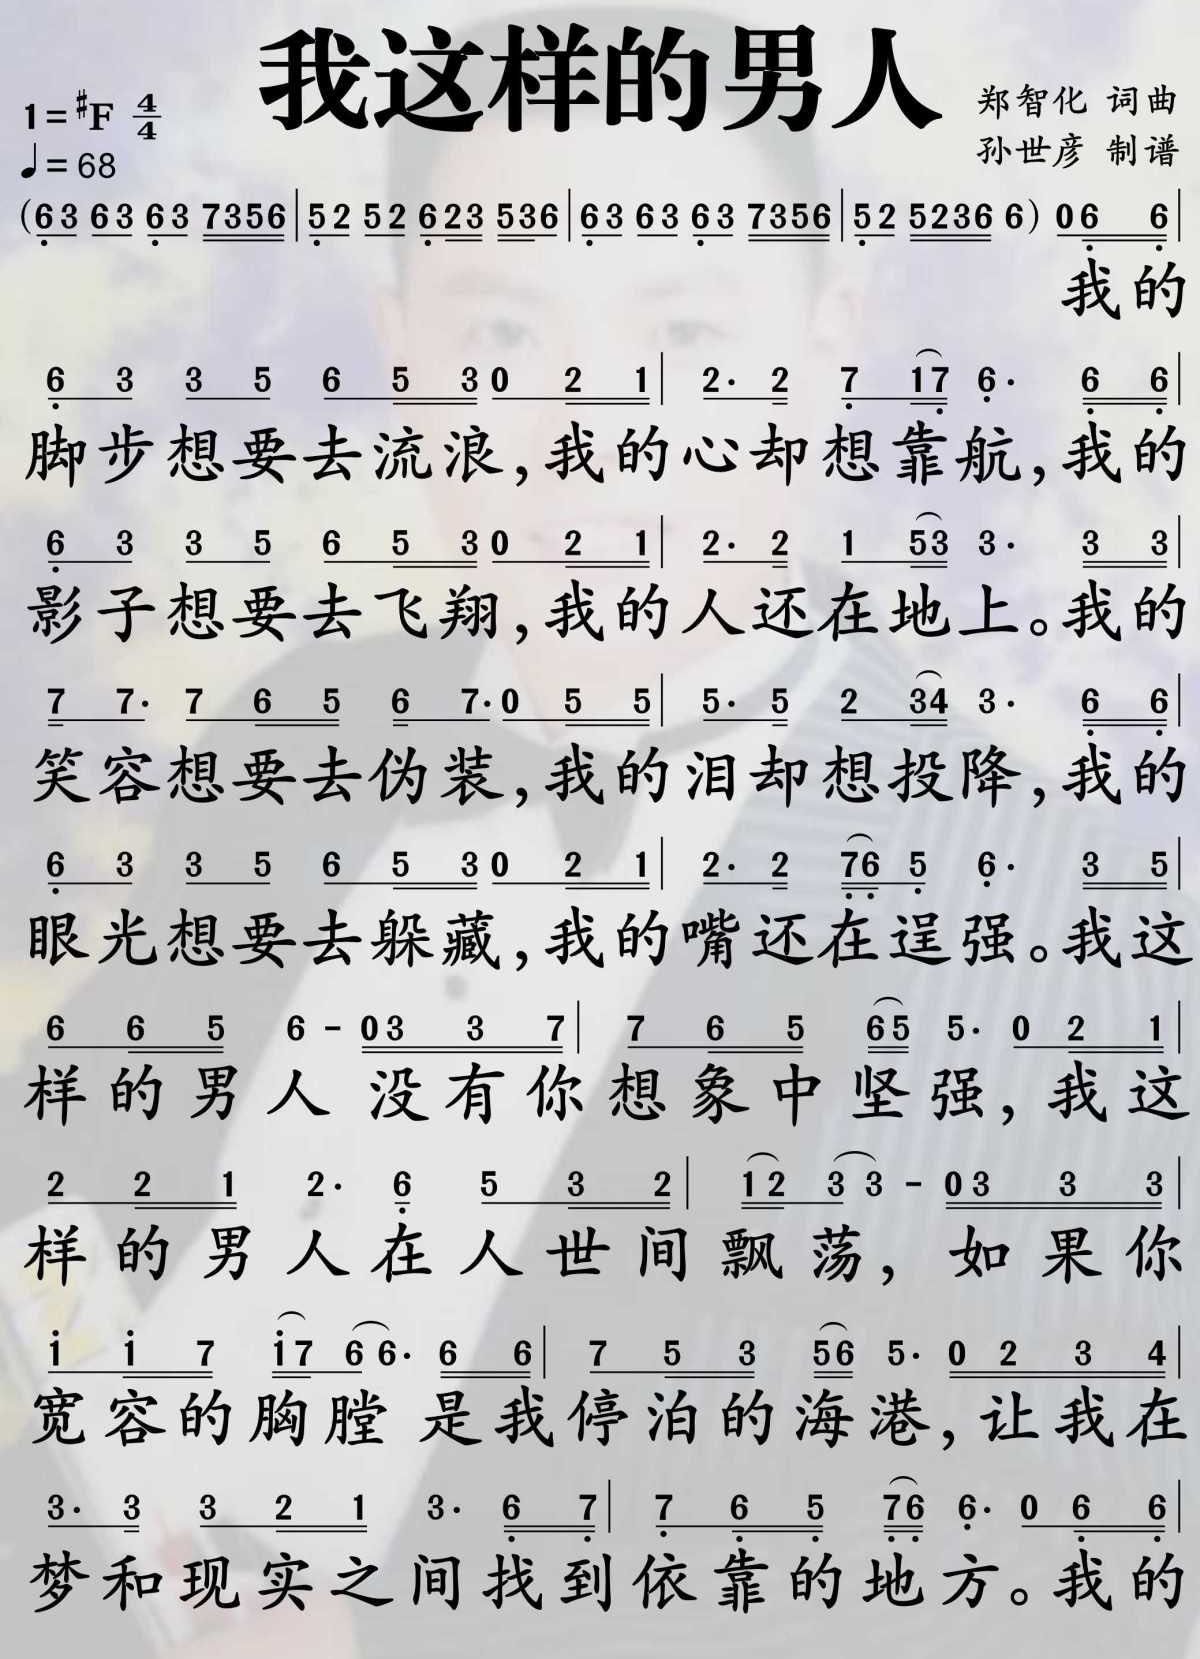 我这样的男人
1=#F 4/4
♩=68
郑智化 词曲
孙世彦 制谱
(63 63 63 7356|52 52 623 536|63 63 63 7356|52 5236 6) 06 6|
我的
6 3 3 5 6 5 3 0 2 1|2· 2 7 17 6· 6 6|
脚步想要去流浪,我的心却想靠航,我的
6 3 3 5 6 5 3 0 2 1|2· 2 1 53 3· 3 3|
影子想要去飞翔,我的人还在地上。我的
7 7· 7 6 5 6 7· 0 5 5|5· 5 2 34 3· 6 6|
笑容想要去伪装,我的泪却想投降,我的
6 3 3 5 6 5 3 0 2 1|2· 2 76 5 6· 3 5|
眼光想要去躲藏,我的嘴还在逞强。我这
6 6 5 6 - 03 3 7|7 6 5 65 5· 0 2 1|
样的男人没有你想象中坚强,我这
2 2 1 2· 6 5 3 2|12 3 3 - 03 3 3|
样的男人在人世间飘荡,如果你
1 1 7 17 6 6· 6 6|7 5 3 56 5· 0 2 3 4|
宽容的胸膛是我停泊的海港,让我在
3· 3 3 2 1 3· 6 7|7 6 5 76 6· 0 6 6|
梦和现实之间找到依靠的地方。我的